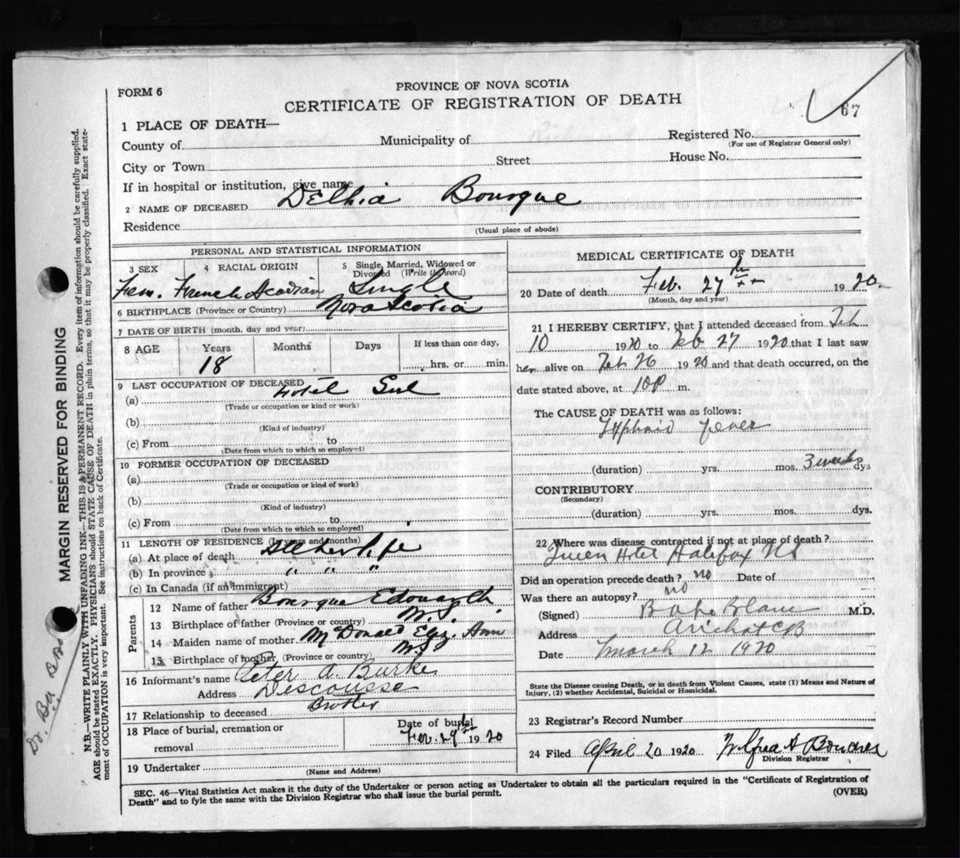 PROVINCE OF NOVA SCOTIA
FORM 6
CERTIFICATE OF REGISTRATION OF DEATH
67
1 PLACE OF DEATH—
County of Municipality of Registered No.
(For use of Registrar General only)
City or Town Street House No.
If in hospital or institution, give name
2 NAME OF DECEASED Delhia Bourque
Residence (Usual place of abode)
PERSONAL AND STATISTICAL INFORMATION
3 SEX 4 RACIAL ORIGIN 5 Single, Married, Widowed or Divorced (Write the word)
Fem. French Acadian Single
6 BIRTHPLACE (Province or Country) Nova Scotia
7 DATE OF BIRTH (month, day and year)
8 AGE Years Months Days If less than one day,
18 hrs. or min.
9 LAST OCCUPATION OF DECEASED
(a) Hotel Girl
(Trade or occupation or kind or work)
(b)
(Kind of industry)
(c) From to
(Date from which to which so employed)
10 FORMER OCCUPATION OF DECEASED
(a)
(Trade or occupation or kind of work)
(b)
(Kind of industry)
(c) From to
(Date from which to which so employed)
11 LENGTH OF RESIDENCE (In years and months)
(a) At place of death All her life
(b) In province " " "
(c) In Canada (if an immigrant)
Parents
12 Name of father Bourque Edouard
13 Birthplace of father (Province or country) N.S.
14 Maiden name of mother McDonald Ann
15 Birthplace of mother (Province or country) N.S.
16 Informant's name Peter A. Burke
Address Descousse
17 Relationship to deceased Brother
18 Place of burial, cremation or removal Date of burial
29th 1920
19 Undertaker
(Name and Address)
MEDICAL CERTIFICATE OF DEATH
20 Date of death Feb. 27th 1920
(Month, day and year)
21 I HEREBY CERTIFY, that I attended deceased from Feb
10 1920 to Feb 27 1920 that I last saw
her alive on Feb 26 1920 and that death occurred, on
date stated above, at 10 P m.
The CAUSE OF DEATH was as follows:
Typhoid fever
(duration) yrs. mos. 3 weeks dys
CONTRIBUTORY
(Secondary)
(duration) yrs. mos. dys.
22 Where was disease contracted if not at place of death?
Queen Hotel Halifax NS
Did an operation precede death? no Date of
Was there an autopsy? no
(Signed) M.D.
Address Arichat CB
Date March 12 1920
State the Disease causing Death, or in death from Violent Causes, state (1) Means and Nature of
Injury, (2) whether Accidental, Suicidal or Homicidal.
23 Registrar's Record Number
24 Filed April 20 1920 Wilfred A Boudrot
Division Registrar
SEC. 46—Vital Statistics Act makes it the duty of the Undertaker or person acting as Undertaker to obtain all the particulars required in the "Certificate of Registration of
Death" and to fyle the same with the Division Registrar who shall issue the burial permit. (OVER)
MARGIN RESERVED FOR BINDING
N.B.—WRITE PLAINLY WITH UNFADING INK—THIS IS A PERMANENT RECORD. Every item of information should be carefully supplied.
AGE should be stated EXACTLY. PHYSICIANS should STATE CAUSE OF DEATH in plain terms, so that it may be properly classified. Exact statement
of OCCUPATION is very important. See instructions on back of Certificate.